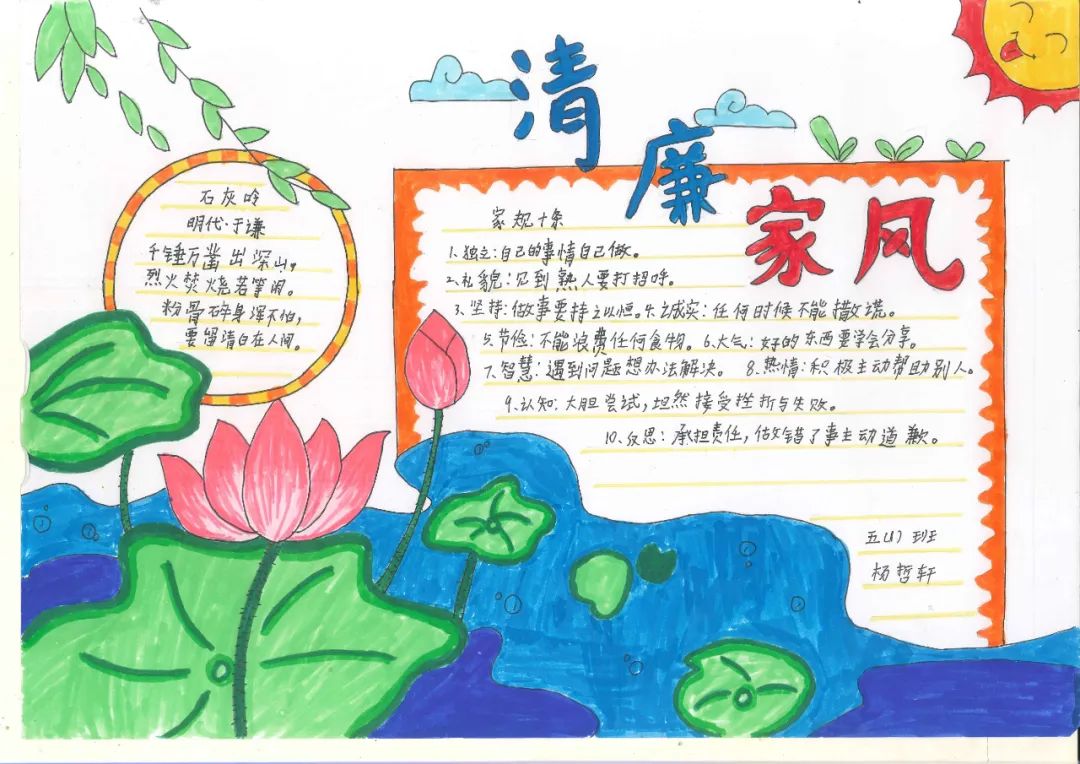 清廉家风
石灰吟
明代·于谦
千锤万凿出深山，
烈火焚烧若等闲。
粉骨碎身浑不怕，
要留清白在人间。
家规十条
1、独立：自己的事情自己做。
2、礼貌：见到熟人要打招呼。
3、坚持：做事要持之以恒。4、诚实：任何时候不能撒谎。
5、节俭：不能浪费任何食物。6、大气：好的东西要学会分享。
7、智慧：遇到问题想办法解决。 8、热情：积极主动帮助别人。
9、认知：大胆尝试，坦然接受挫折与失败。
10、反思：承担责任，做错了事主动道歉。
五（1）班
杨哲轩